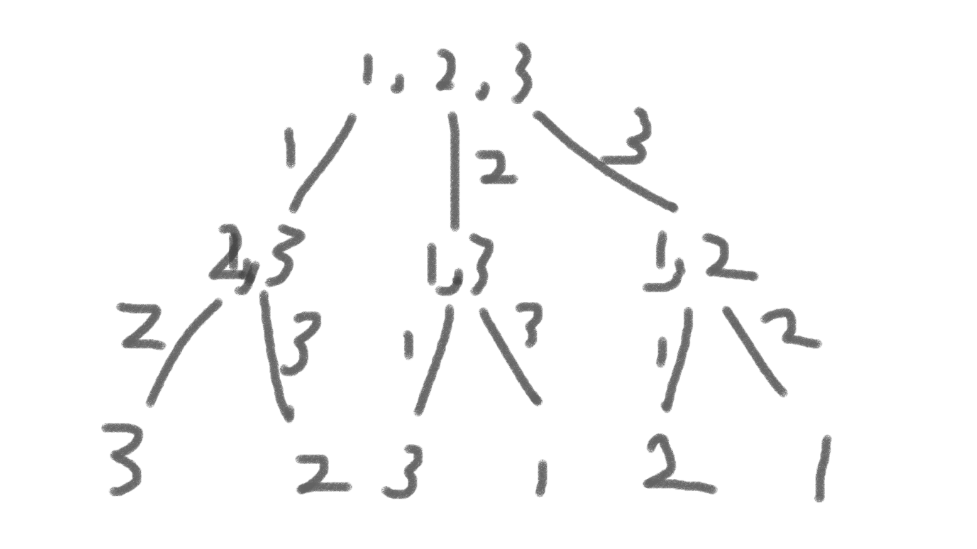 1, 2, 3
1 2 3
2,3 1,3 1,2
2 3 1 3 1 2
3 2 3 1 2 1